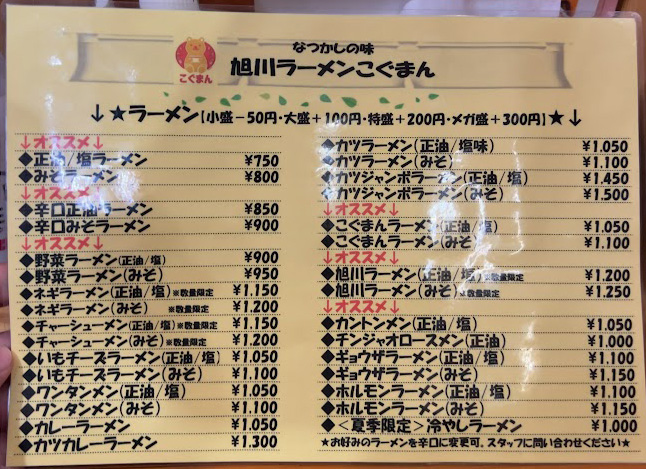 なつかしの味
こぐまん
旭川ラーメンこぐまん
↓★ラーメン【小盛－50円・大盛＋100円・特盛＋200円・メガ盛＋300円】★↓
↓オススメ↓
◆正油/塩ラーメン ¥750
◆みそラーメン ¥800
↓オススメ↓
◆辛口正油ラーメン ¥850
◆辛口みそラーメン ¥900
↓オススメ↓
◆野菜ラーメン(正油/塩) ¥900
◆野菜ラーメン(みそ) ¥950
◆ネギラーメン(正油/塩)※数量限定 ¥1.150
◆ネギラーメン(みそ) ※数量限定 ¥1.200
◆チャーシューメン(正油/塩)※数量限定 ¥1.150
◆チャーシューメン(みそ)※数量限定 ¥1.200
◆いもチーズラーメン(正油/塩) ¥1.050
◆いもチーズラーメン(みそ) ¥1.100
◆ワンタンメン(正油/塩) ¥1.050
◆ワンタンメン(みそ) ¥1.100
◆カレーラーメン ¥1.050
◆カツカレーラーメン ¥1.300
◆カツラーメン(正油/塩味) ¥1.050
◆カツラーメン(みそ) ¥1.100
◆カツジャンボラーメン(正油/塩) ¥1.450
◆カツジャンボラーメン(みそ) ¥1.500
↓オススメ↓
◆こぐまんラーメン(正油/塩) ¥1.050
◆こぐまんラーメン(みそ) ¥1.100
↓オススメ↓
◆旭川ラーメン(正油/塩)※数量限定 ¥1.200
◆旭川ラーメン(みそ)※数量限定 ¥1.250
↓オススメ↓
◆カントンメン(正油/塩) ¥1.050
◆チンジャオロースメン(正油) ¥1.000
◆ギョウザラーメン(正油/塩) ¥1.100
◆ギョウザラーメン(みそ) ¥1.150
◆ホルモンラーメン(正油/塩) ¥1.100
◆ホルモンラーメン(みそ) ¥1.150
◆＜夏季限定＞冷やしラーメン ¥1.000
★お好みのラーメンを辛口に変更可,スタッフに問い合わせください★